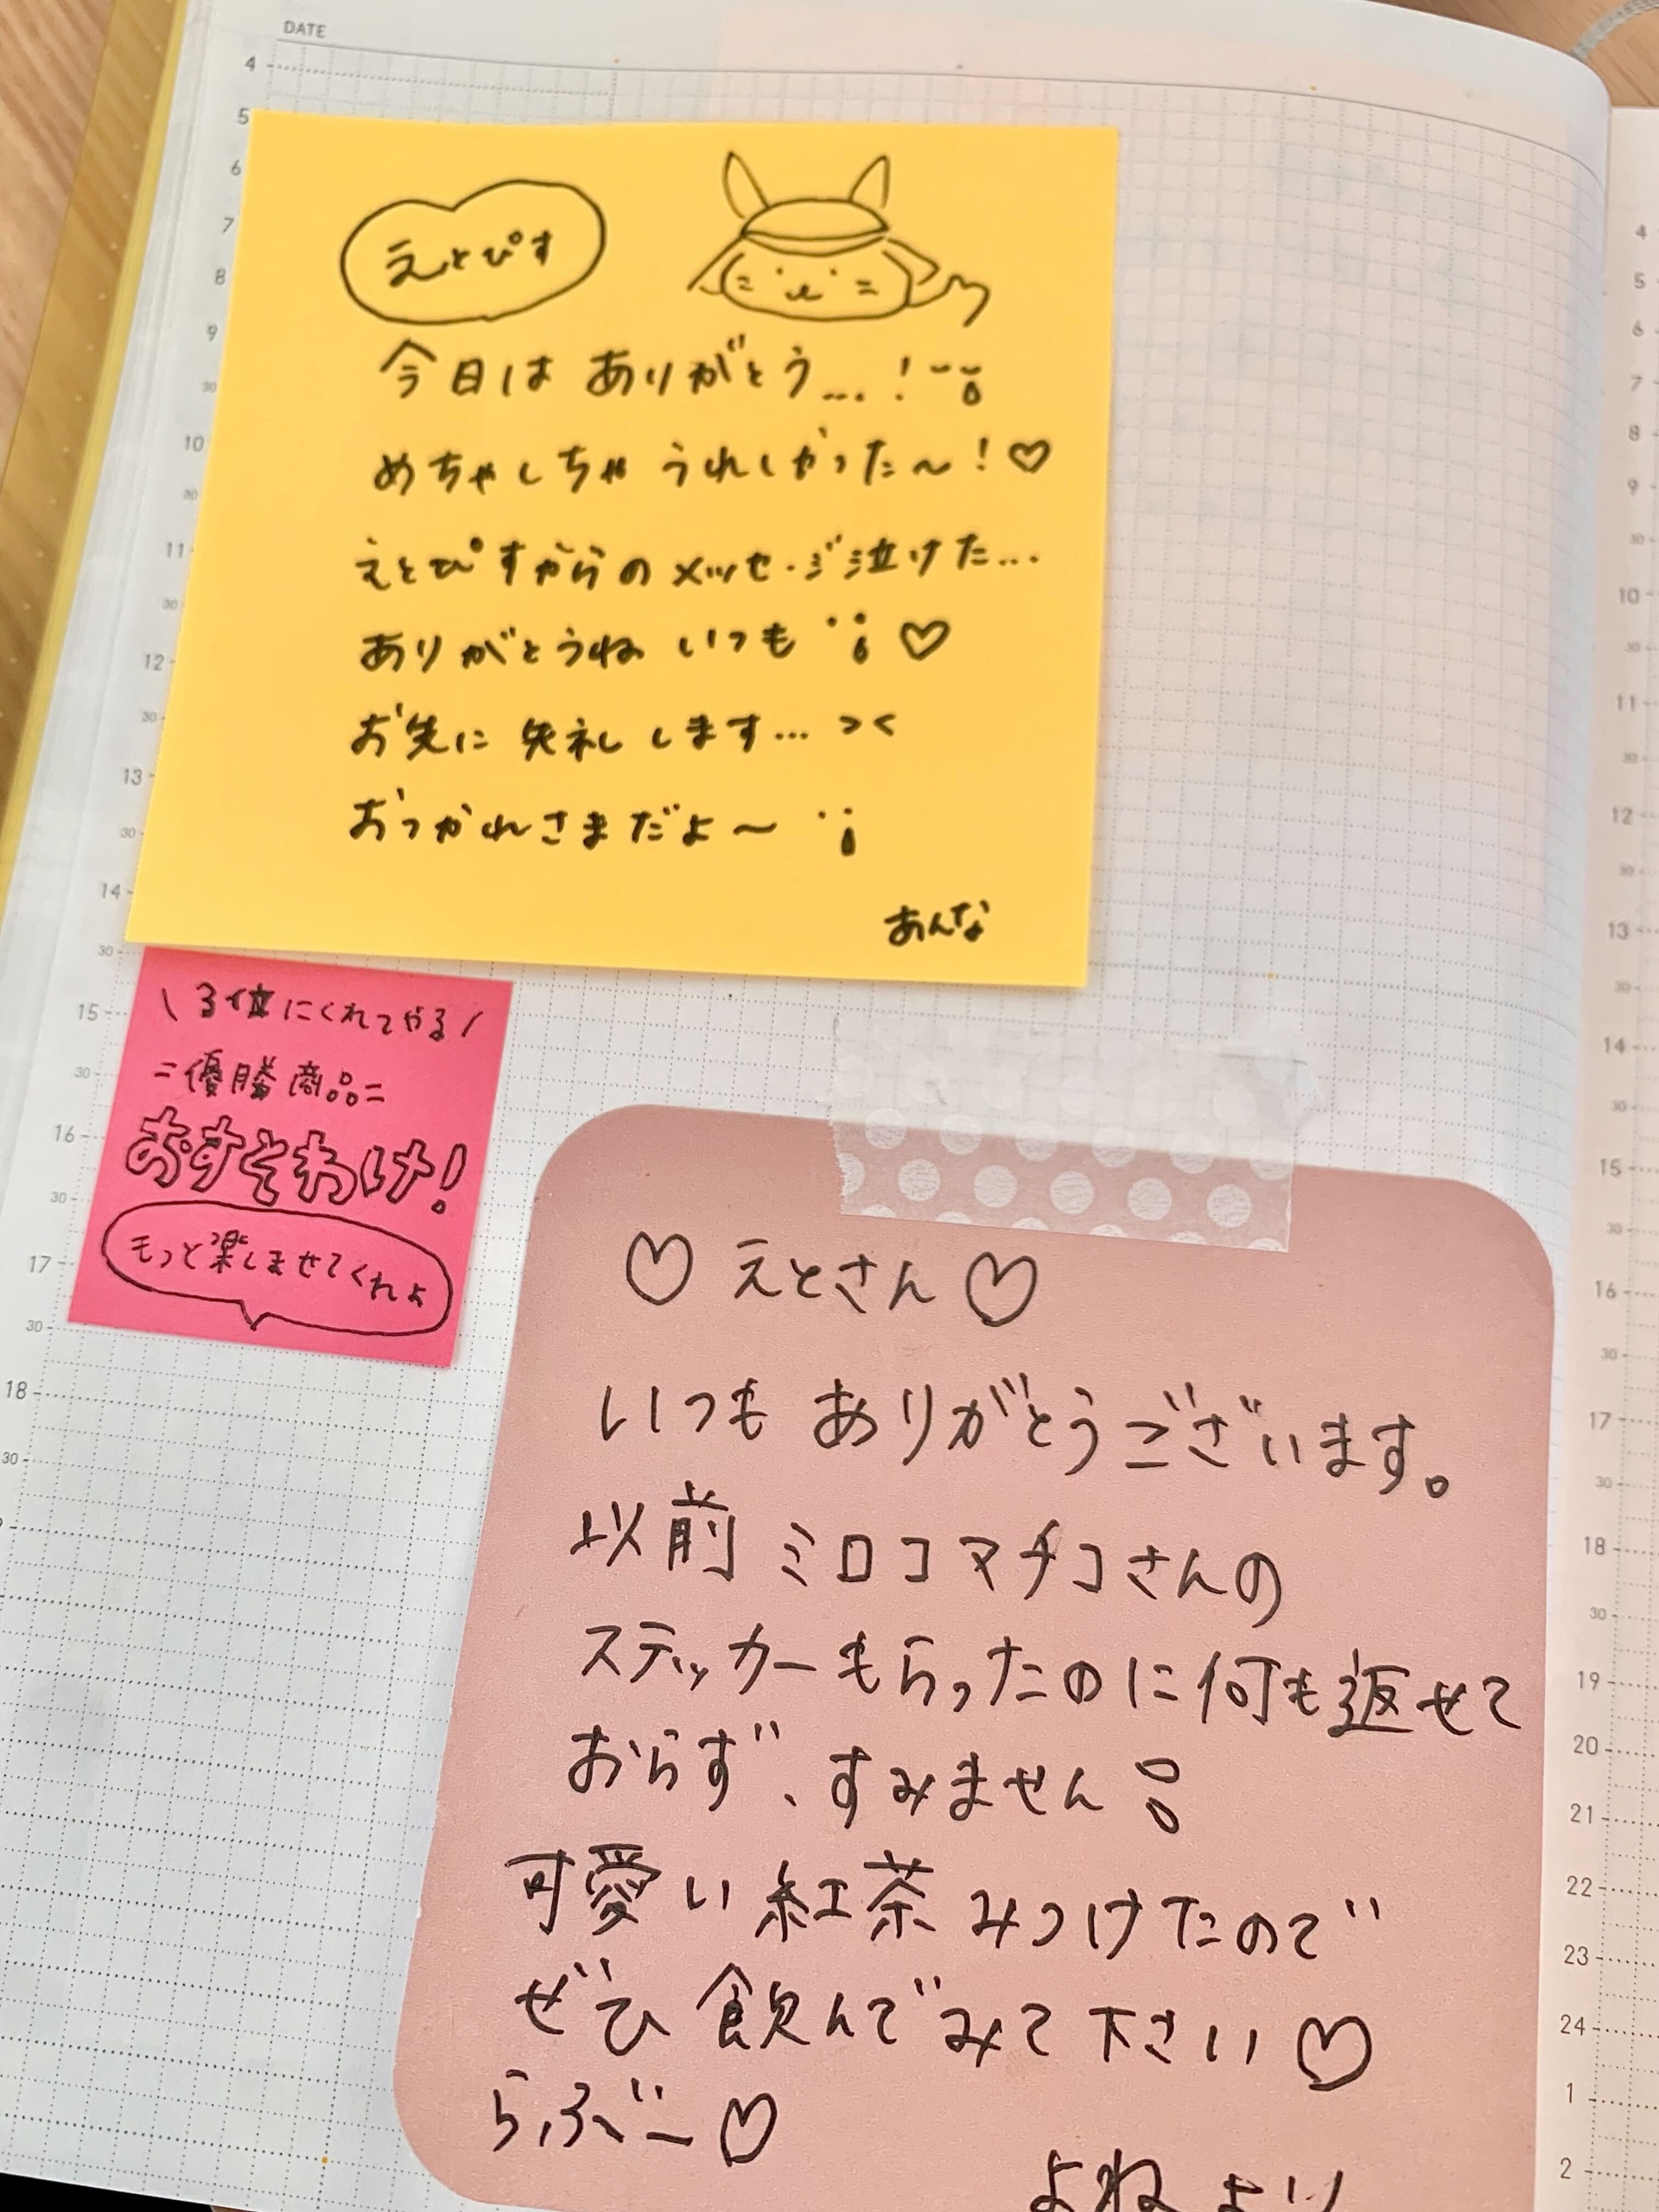 DATE
えとぴす
今日は ありがとう...!
めちゃしちゃ うれしかった〜!♡
えとぴすからの メッセージ泣けた...
ありがとうね いつも ♡
お先に 失礼します... ><
おつかれさまだよ〜
あんな
\ 3位にくれてやる /
=優勝商品=
おすそわけ!
もっと楽しませてくれよ
♡ えとさん ♡
いつも ありがとうございます。
以前 ミロコマチコさんの
ステッカーもらったのに何も返せて
おらず、すみません
可愛い 紅茶 みつけたので
ぜひ 飲んでみて 下さい♡
らぶー♡
よね より
4
5
6
7
8
9
30
10
30
11
30
12
30
13
30
14
30
15
30
16
30
17
30
18
30
4
5
6
7
8
9
30
10
30
11
30
12
30
13
30
14
30
15
30
16
30
17
30
18
30
19
20
21
22
23
24
1
2